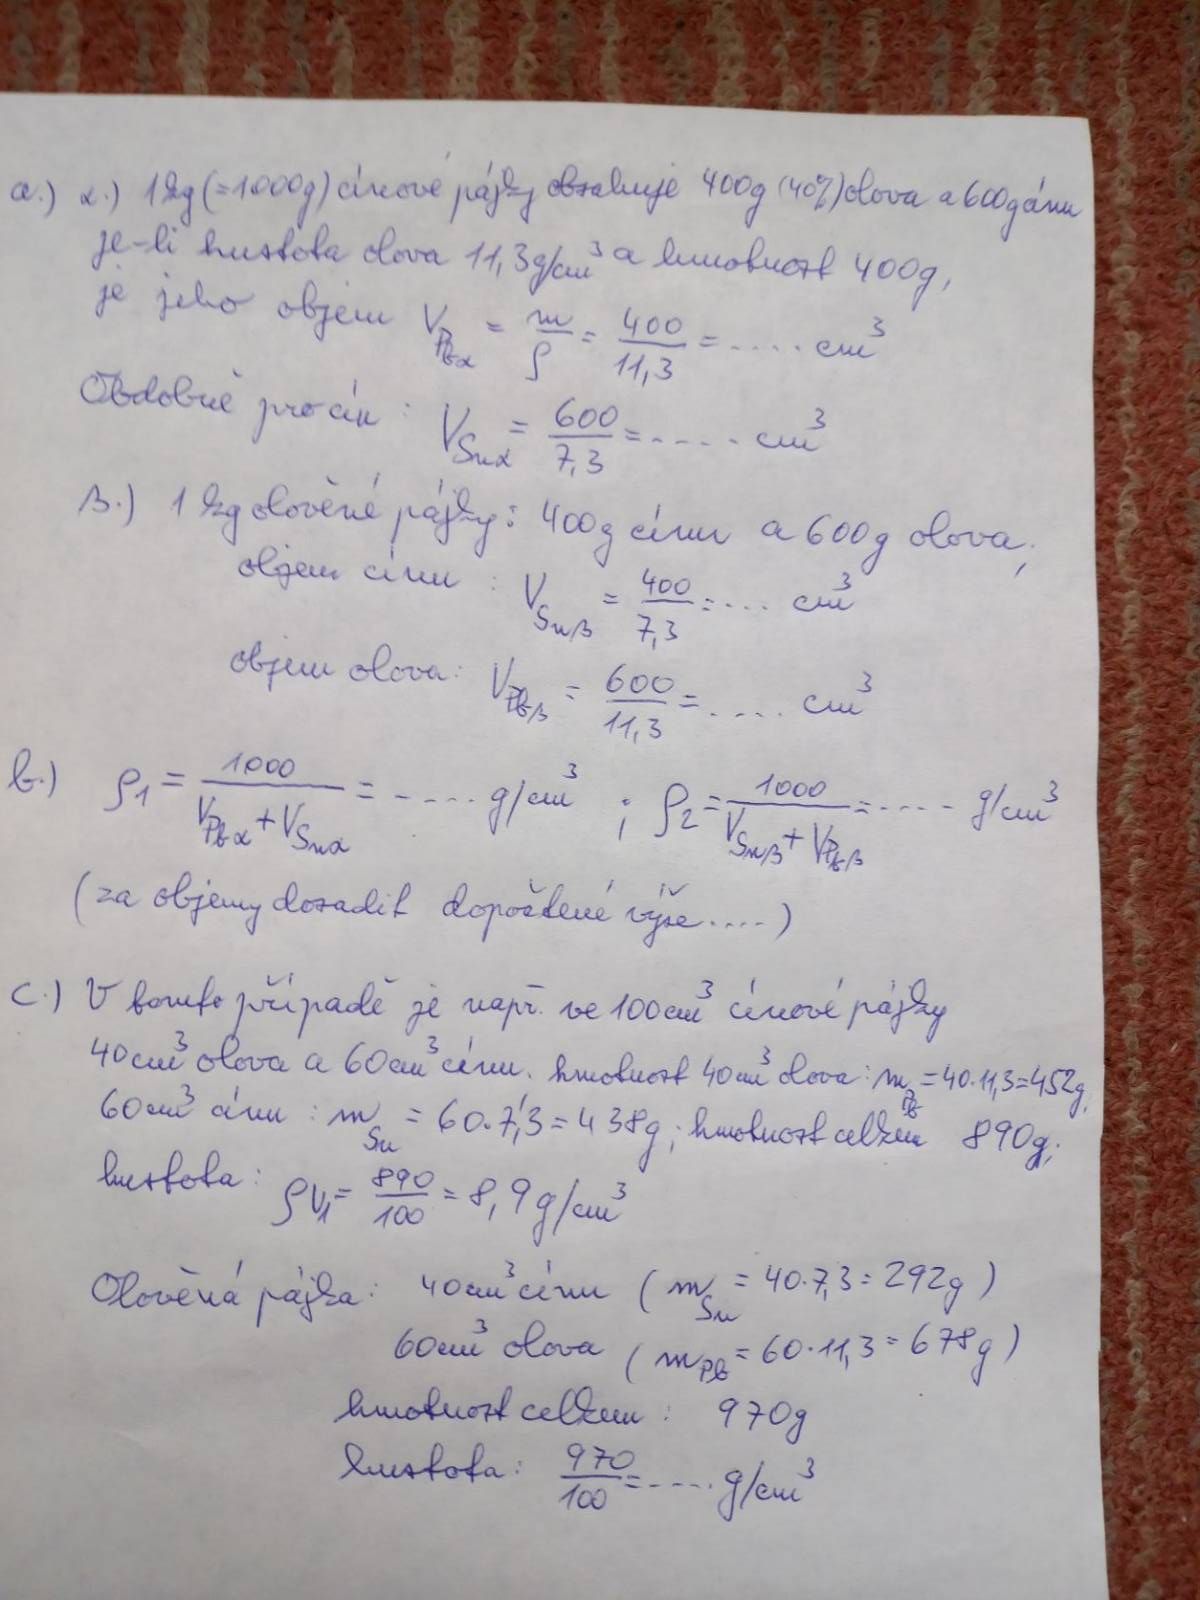 a.) α.) 1kg (=1000g) cínové pájky obsahuje 400g (40%) olova a 600g cínu
je-li hustota olova 11,3g/cm³ a hmotnost 400g,
je jeho objem V_Pbα = m/ρ = 400/11,3 = ..... cm³
Obdobně pro cín: V_Snα = 600/7,3 = ..... cm³
β.) 1 kg olověné pájky: 400g cínu a 600g olova;
objem cínu: V_Snβ = 400/7,3 = .... cm³
objem olova: V_Pbβ = 600/11,3 = ..... cm³
b.) ρ1 = 1000/(V_Pbα + V_Snα) = ..... g/cm³ ; ρ2 = 1000/(V_Snβ + V_Pbβ) = ..... g/cm³
(za objemy dosadit dopočtené výše....)
c.) V tomto případě je např. ve 100cm³ cínové pájky
40cm³ olova a 60cm³ cínu. hmotnost 40cm³ olova: m_Pb = 40.11,3 = 452g,
60cm³ cínu : m_Sn = 60.7,3 = 438g; hmotnost celkem 890g;
hustota: ρV1 = 890/100 = 8,9g/cm³
Olověná pájka: 40cm³ cínu (m_Sn = 40.7,3 = 292g)
60cm³ olova (m_Pb = 60.11,3 = 678g)
hmotnost celkem: 970g
hustota: 970/100 = ..... g/cm³